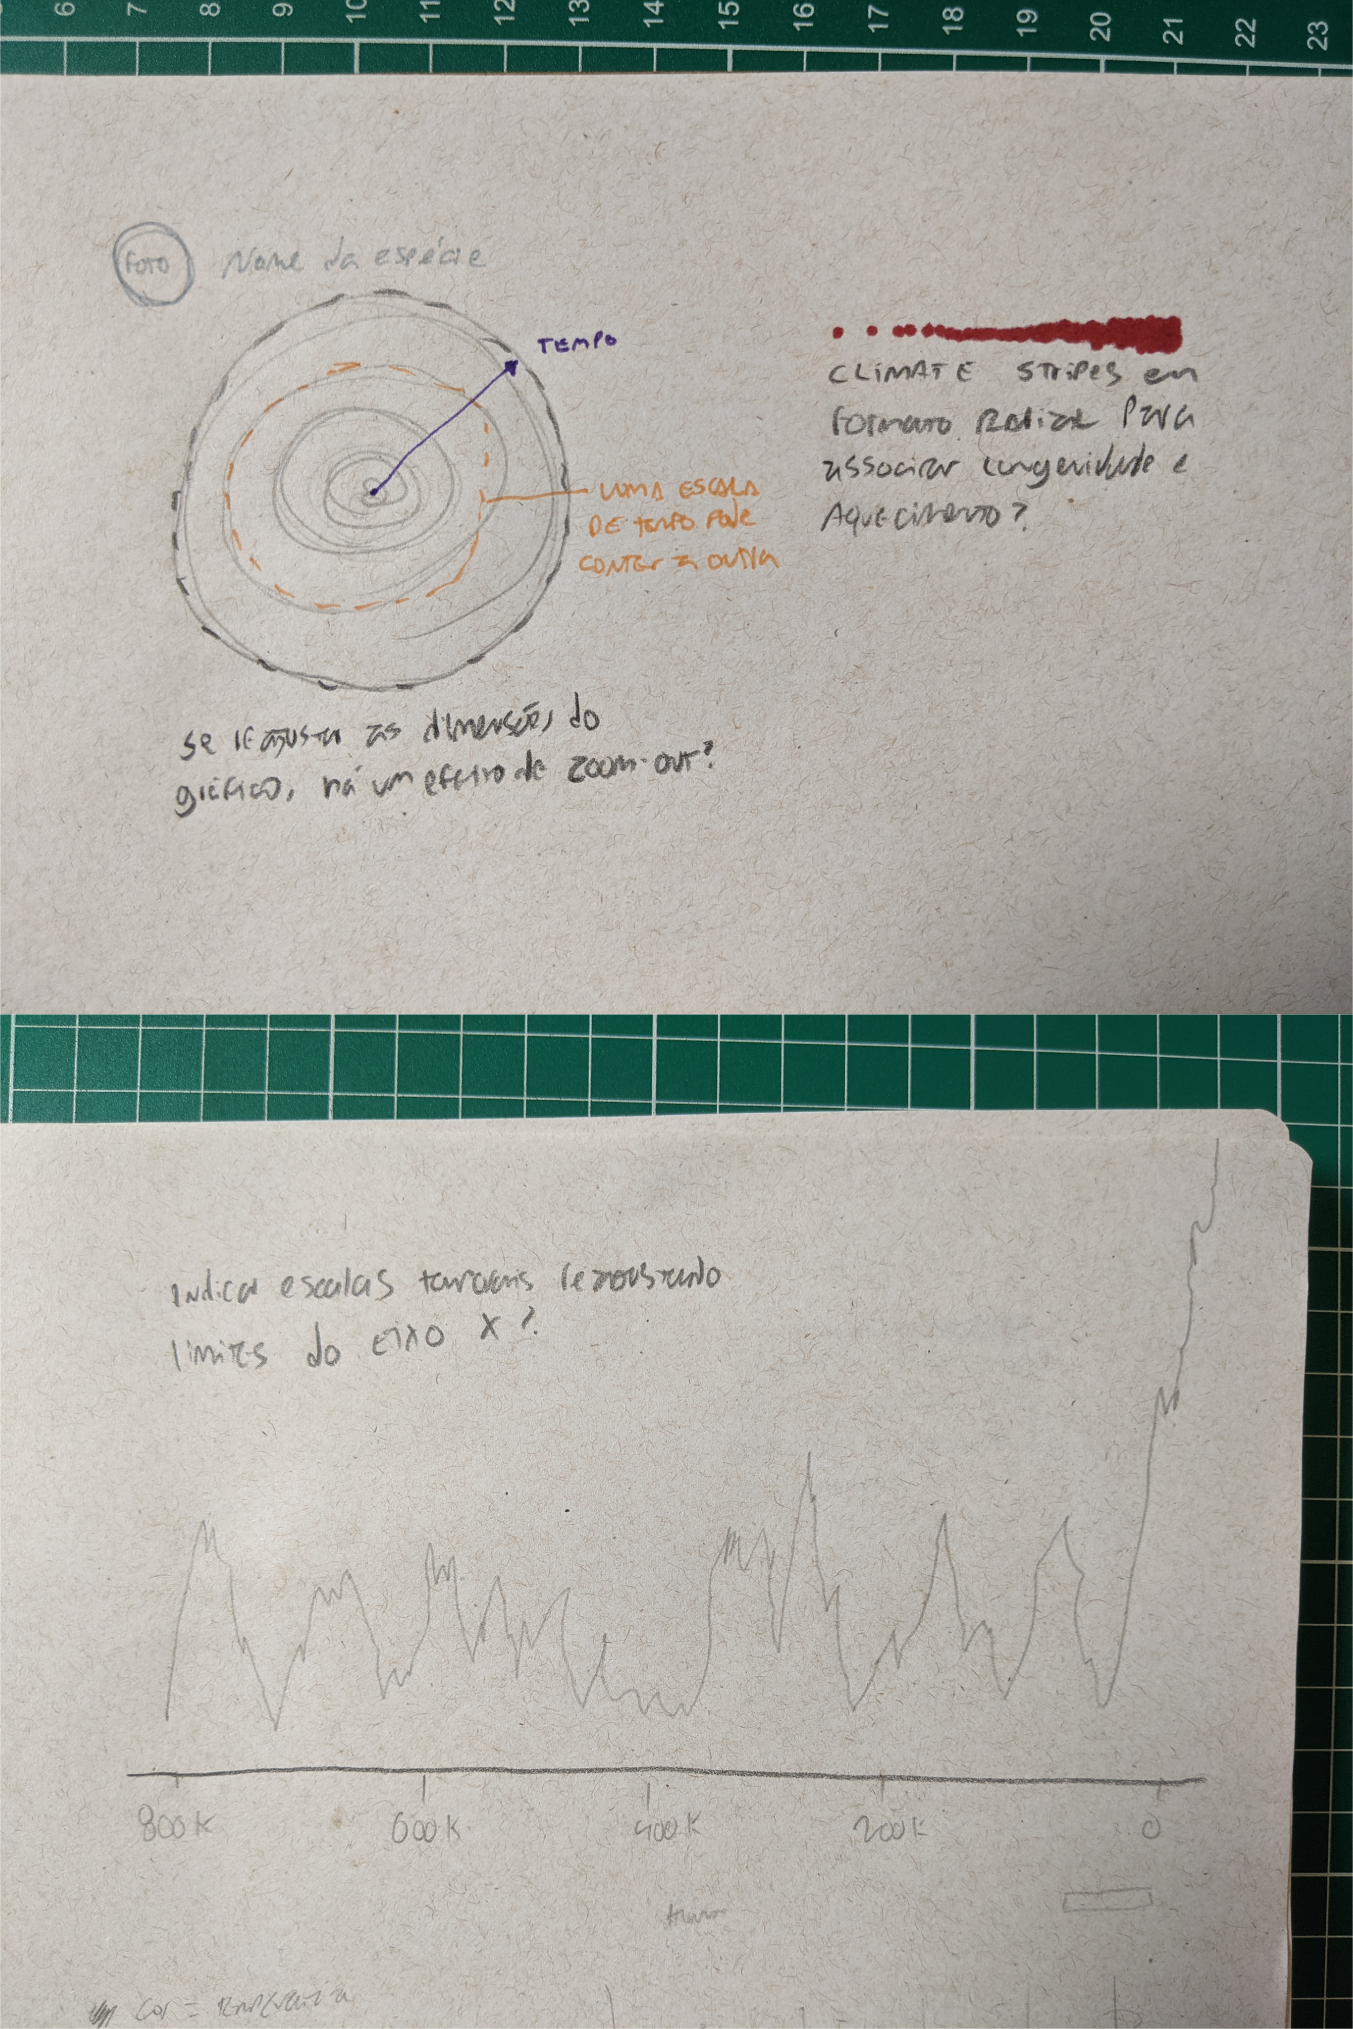 6 7 8 9 10 11 12 13 14 15 16 17 18 19 20 21 22 23
FOTO
Nome da espécie
TEMPO
UMA ESCALA
DE TEMPO PODE
CONTER A OUTRA
CLIMATE STRIPES em
FORMATO RADIAL PARA
associar longevidade e
AQUECIMENTO?
se reajustar as dimensões do
gráfico, há um efeito de zoom-out?
Indicar escalas temporais reajustando
limites do eixo x?
800K 600K 400K 200K 0
Cor = temperatura